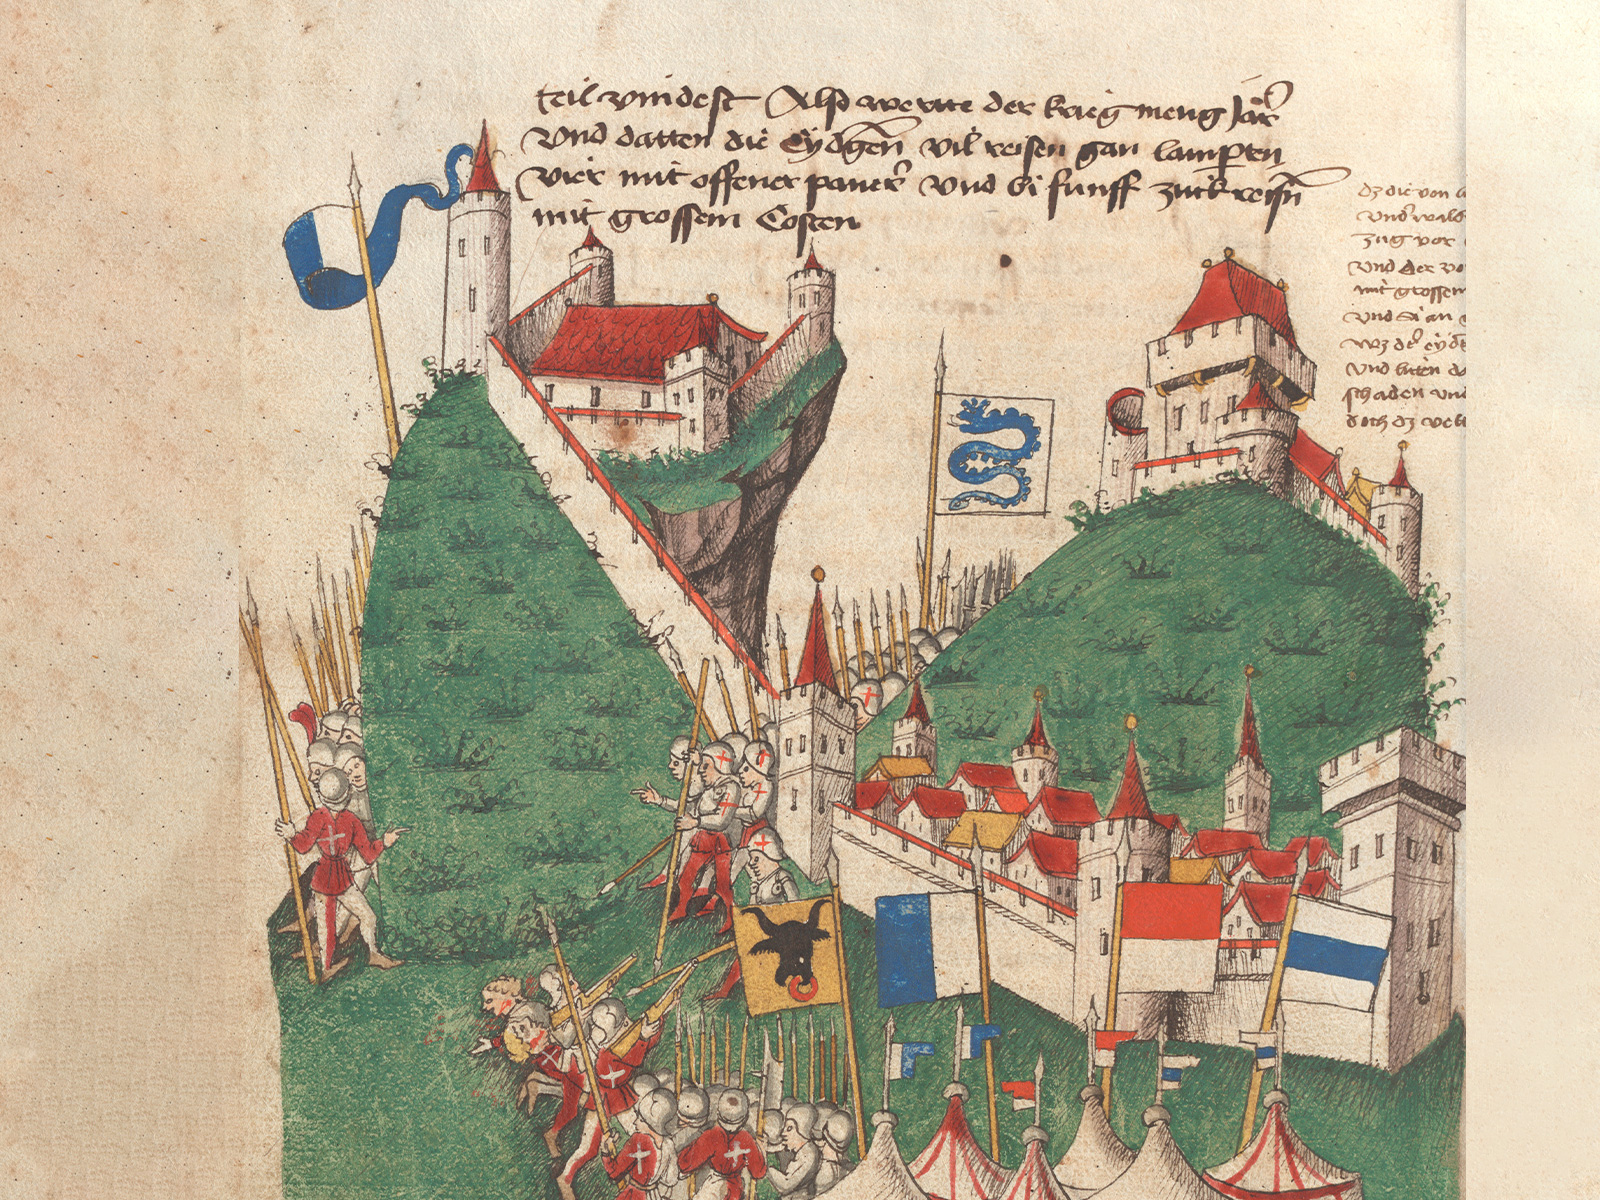 teil vnidest Also werte der krieg meng Jar
Vnd datten die Eydgen vil reisen gan lamparten
vier mit offener paner vnd bi funff zuck reisen
mit grossem Costen
dz die von
vnd wald
zug vor
vnd der vo
mit grossem
vnd si an
wz der eydt
vnd
schaden vnd
doch dz